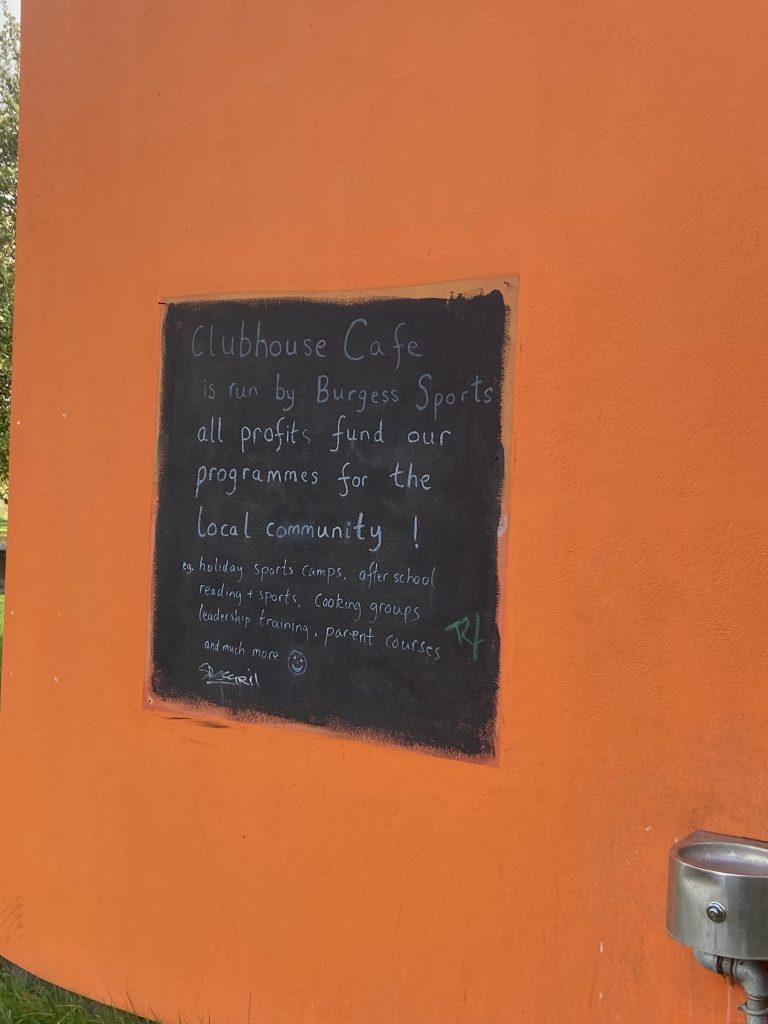 Clubhouse Cafe
is run by Burgess Sports
all profits fund our
programmes for the
local community !
eg. holiday sports camps, after school
reading + sports, cooking groups
leadership training, parent courses
and much more ☺